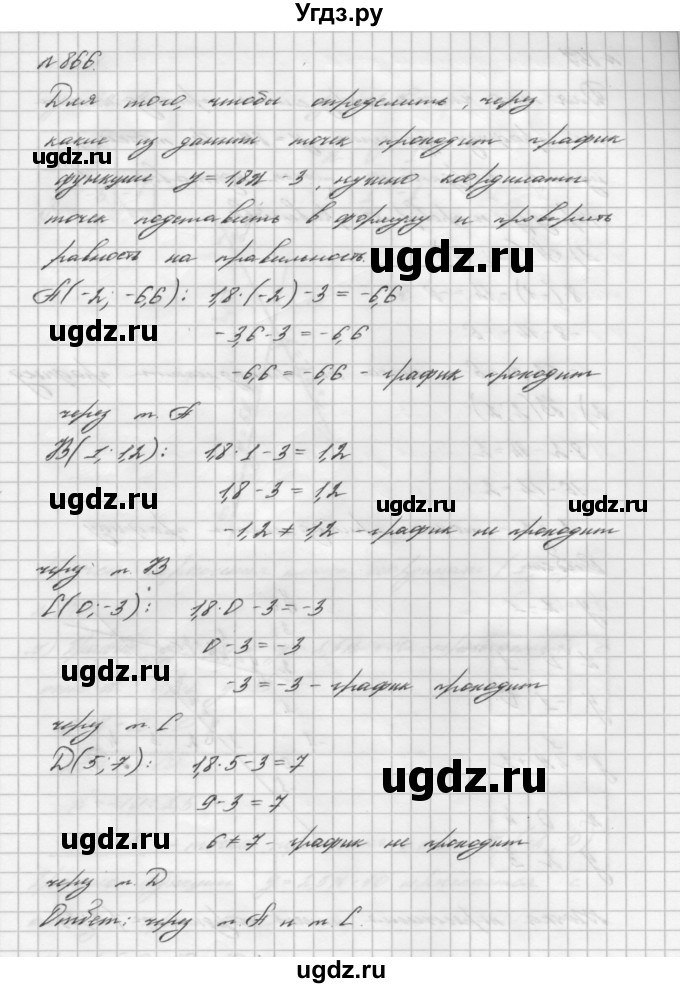 Угдз.ру
№866.
Для того, чтобы определить, через
какие из данных точек проходит график
ugdz.ru
функции y = 1,8x - 3, нужно координаты
точек подставить в формулу и проверить
равность на правильность.
ugdz.ru
А(-2; -6,6): 1,8·(-2) - 3 = -6,6
ugdz.ru
-3,6 - 3 = -6,6
-6,6 = -6,6 - график проходит
через т. А
В(1; 1,2): 1,8·1 - 3 = 1,2
ugdz.ru
1,8 - 3 = 1,2
ugdz.ru ugdz.ru
-1,2 ≠ 1,2 - график не проходит
через т. В
С(0; -3): 1,8·0 - 3 = -3
0 - 3 = -3
ugdz.ru
-3 = -3 - график проходит
через т. С
D(5; 7): 1,8·5 - 3 = 7
ugdz.ru
9 - 3 = 7
ugdz.ru
6 ≠ 7 - график не проходит
через т. D
Ответ: через т. А и т. С.
ugdz.ru
ugdz.ru